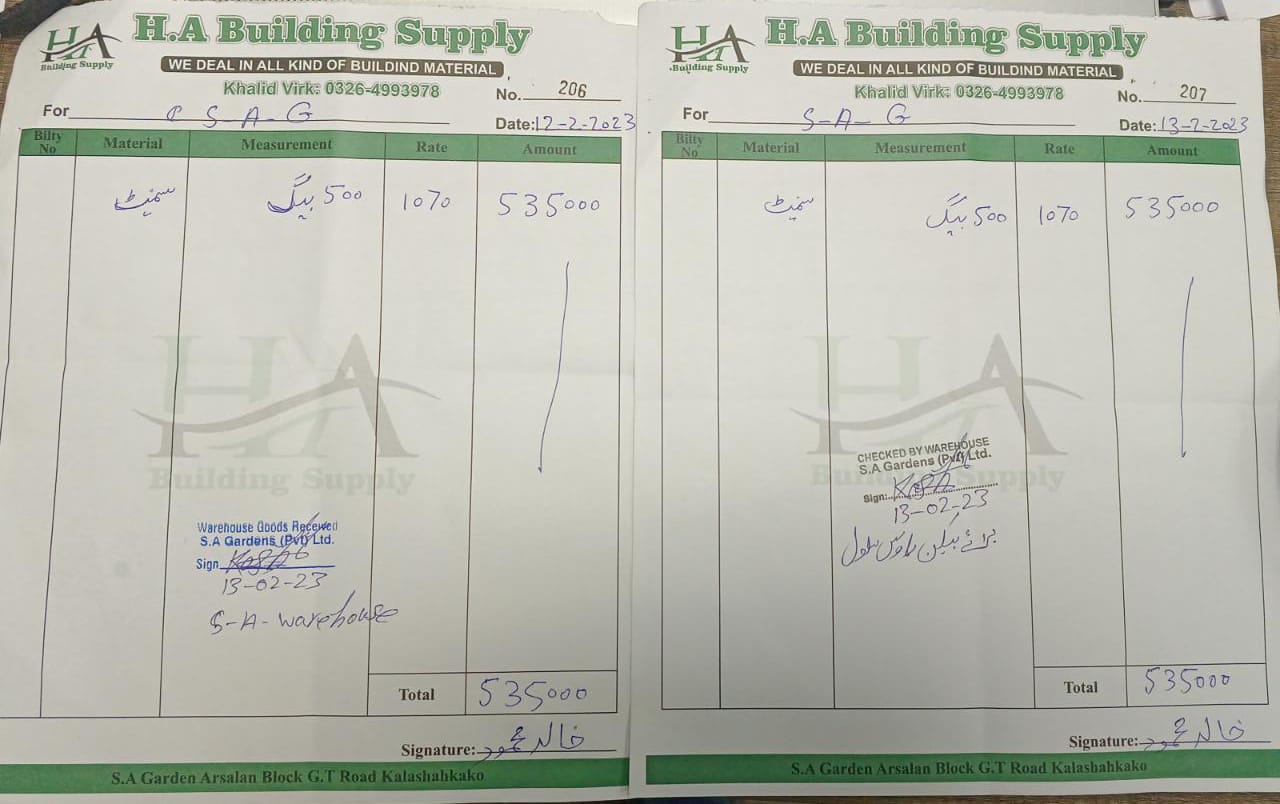 HA
Building Supply
H.A Building Supply
WE DEAL IN ALL KIND OF BUILDIND MATERIAL
Khalid Virk: 0326-4993978
No. 206
For S-A-G
Date: 12-2-2023
Bilty No Material Measurement Rate Amount
سمنٹ 500 بیگ 1070 535000
HA
Building Supply
Warehouse Goods Received
S.A Gardens (Pvt) Ltd.
Sign
13-02-23
S-A-warehouse
Total 535000
Signature: خالد محمود
S.A Garden Arsalan Block G.T Road Kalashahkako
HA
Building Supply
H.A Building Supply
WE DEAL IN ALL KIND OF BUILDIND MATERIAL
Khalid Virk: 0326-4993978
No. 207
For S-A-G
Date: 13-2-2023
Bilty No Material Measurement Rate Amount
سمنٹ 500 بیگ 1070 535000
HA
Building Supply
CHECKED BY WAREHOUSE
S.A Gardens (Pvt) Ltd.
Sign:
13-02-23
برائے
Total 535000
Signature: خالد محمود
S.A Garden Arsalan Block G.T Road Kalashahkako